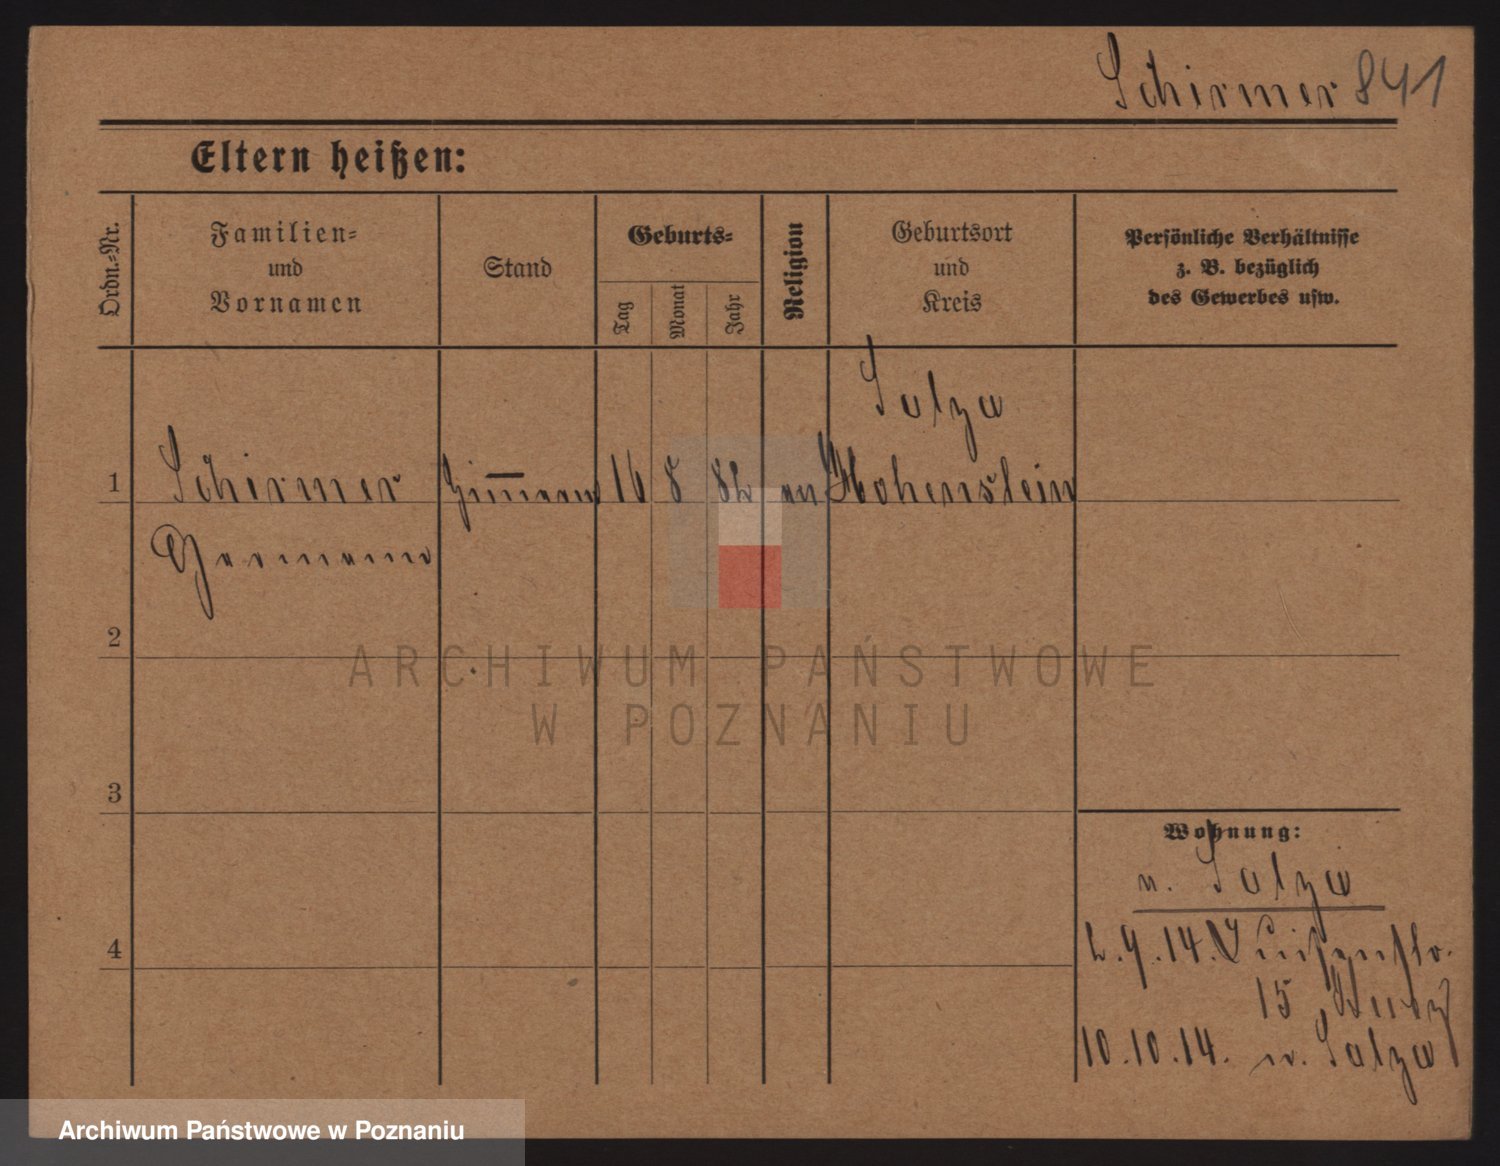 Schirmer 841
Eltern heißen:
Ordn.-Nr.
Familien-
und
Vornamen
Stand
Geburts-
Tag
Monat
Jahr
Religion
Geburtsort
und
Kreis
Persönliche Verhältnisse
z. B. bezüglich
des Gewerbes usw.
Salza
1 Schirmer 16 8 82 ev Hohenstein
Hermann
2
3
4
Wohnung:
n. Salza
2.9.14. Luisenstr.
15
10.10.14. n. Salza
ARCHIWUM PAŃSTWOWE
W POZNANIU
Archiwum Państwowe w Poznaniu